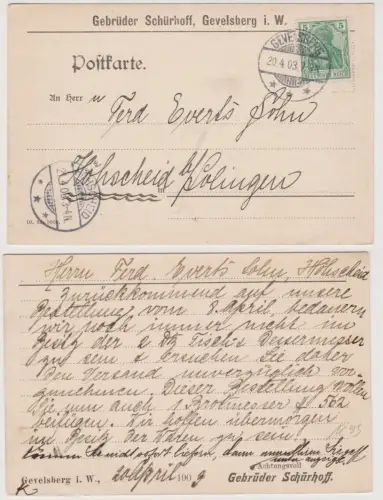 Gebrüder Schürhoff, Gevelsberg i. W.
Postkarte.
GEVELSBERG
20.4.03.
5
An Herr n
Ferd Everts Sohn
Höhscheid b/ Solingen
Herrn Ferd. Everts Sohn, Höhscheid
Zurückkommend auf unsere
Bestellung vom 8. April, bedauern
wir noch immer nicht im
Besitz der 2 Dz Tisch & Dessertmesser
zu sein & ersuchen Sie daher
den Versand unverzüglich vor-
zunehmen. Dieser Bestellung wollen
Sie nun auch 1 Brotmesser # 562
beifügen. Wir hoffen übermorgen
im Besitz der Waren zu sein.
Achtungsvoll
Gevelsberg i. W., 20 April 190
Gebrüder Schürhoff.